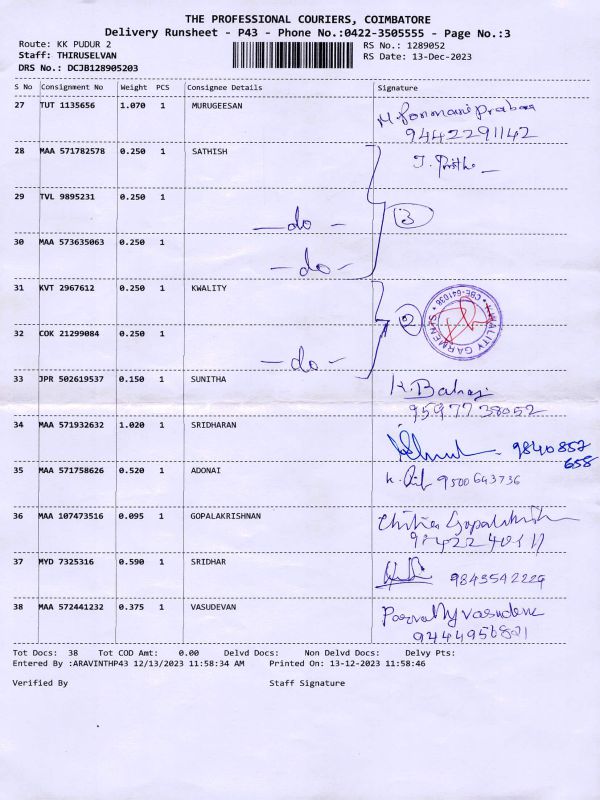 THE PROFESSIONAL COURIERS, COIMBATORE
Delivery Runsheet - P43 - Phone No.:0422-3505555 - Page No.:3
Route: KK PUDUR 2
RS No.: 1289052
Staff: THIRUSELVAN
RS Date: 13-Dec-2023
DRS No.: DCJB128905203
S No Consignment No Weight PCS Consignee Details Signature
27 TUT 1135656 1.070 1 MURUGEESAN
9442291142
28 MAA 571782578 0.250 1 SATHISH
29 TVL 9895231 0.250 1
-do-
3
30 MAA 573635063 0.250 1
-do-
31 KVT 2967612 0.250 1 KWALITY
2
32 COK 21299084 0.250 1
-do-
33 JPR 502619537 0.150 1 SUNITHA
9597738052
34 MAA 571932632 1.020 1 SRIDHARAN
9840857
658
35 MAA 571758626 0.520 1 ADONAI
9500643736
36 MAA 107473516 0.095 1 GOPALAKRISHNAN
37 MYD 7325316 0.590 1 SRIDHAR
9843542229
38 MAA 572441232 0.375 1 VASUDEVAN
Tot Docs: 38 Tot COD Amt: 0.00 Delvd Docs: Non Delvd Docs: Delvy Pts:
Entered By :ARAVINTHP43 12/13/2023 11:58:34 AM Printed On: 13-12-2023 11:58:46
Verified By Staff Signature